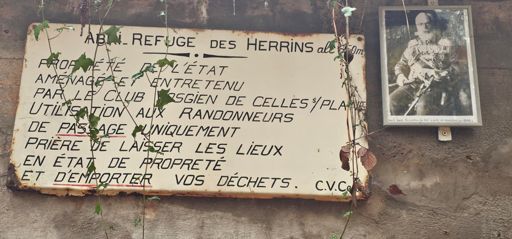 ABRI-REFUGE DES HERRINS alt.
PROPRIÉTÉ DE L'ÉTAT
AMÉNAGÉ ET ENTRETENU
PAR LE CLUB VOSGIEN DE CELLES S/PLAINE
UTILISATION AUX RANDONNEURS
DE PASSAGE UNIQUEMENT
PRIÈRE DE LAISSER LES LIEUX
EN ÉTAT DE PROPRETÉ
ET D'EMPORTER VOS DÉCHETS. C.V.C.